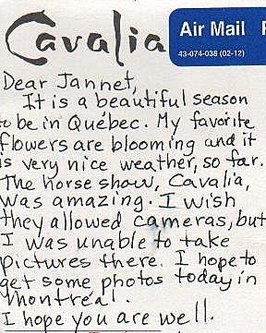 Cavalia
Air Mail
43-074-038 (02-12)
Dear Jannet,
It is a beautiful season
to be in Québec. My favorite
flowers are blooming and it
is very nice weather, so far.
The horse show, Cavalia,
was amazing. I wish
they allowed cameras, but
I was unable to take
pictures there. I hope to
get some photos today in
Montréal.
I hope you are well.